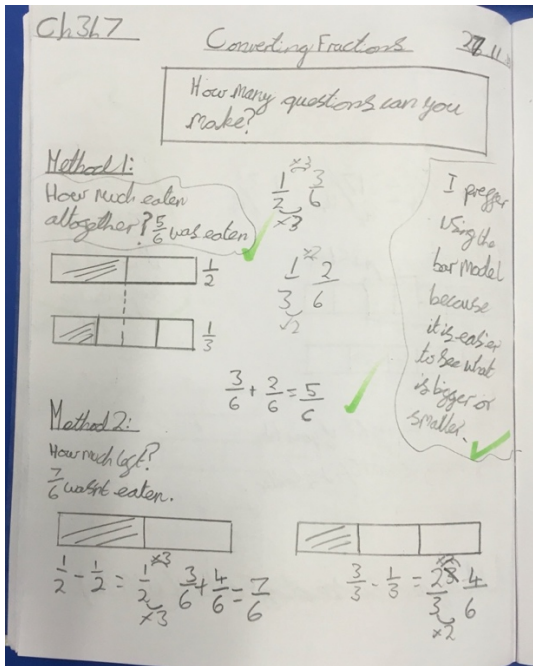 Ch3L7
Converting Fractions
27 11
How many questions can you
make?
Method 1:
How much eaten
altogether? 5/6 was eaten
1/2
1/3
×3
1/2 3/6
×3
×2
1/3 2/6
×2
3/6 + 2/6 = 5/6
I preffer
using the
bar model
because
it is easier
to see what
is bigger or
smaller.
Method 2:
How much left?
7/6 wasnt eaten.
×3
1/2 - 1/2 = 1/2 3/6 + 4/6 = 7/6
×3
×2
3/3 - 1/3 = 2/3 4/6
×2